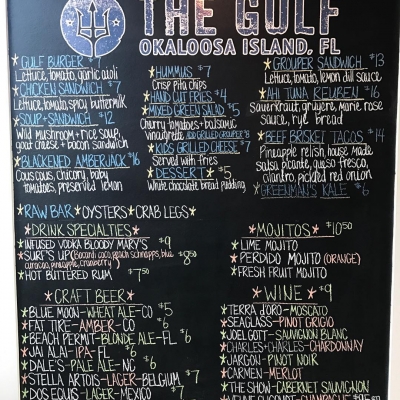 THE GULF
OKALOOSA ISLAND, FL
GULF BURGER $7
Lettuce, tomato, garlic aioli
CHICKEN SANDWICH $7
Lettuce, tomato, spicy buttermilk
SOUP + SANDWICH $12
Wild mushroom + rice soup,
goat cheese + bacon sandwich
BLACKENED AMBERJACK $16
Cous cous, chicory, baby
tomatoes, preserved lemon
HUMMUS $7
Crisp pita chips
HAND CUT FRIES $4
MIXED GREEN SALAD $5
Cherry tomatoes + balsamic
vinaigrette, ADD GRILLED GROUPER $8
KIDS GRILLED CHEESE $7
Served with fries
DESSERT $5
White chocolate bread pudding
GROUPER SANDWICH $13
Lettuce, tomato, lemon dill sauce
AHI TUNA REUBEN $16
Sauerkraut, gruyere, marie rose
sauce, rye bread
BEEF BRISKET TACOS $14
Pineapple relish, house made
salsa picante, queso fresco,
cilantro, pickled red onion
GREENMAN'S KALE $6
RAW BAR OYSTERS CRAB LEGS
DRINK SPECIALTIES
INFUSED VODKA BLOODY MARY'S $9
SURF'S UP (Bacardi coco, peach schnapps, blue
curacao, pineapple, cranberry) $8.50
HOT BUTTERED RUM $7.50
MOJITOS $10.50
LIME MOJITO
PERDIDO MOJITO (ORANGE)
FRESH FRUIT MOJITO
CRAFT BEER
BLUE MOON-WHEAT ALE-CO $5
FAT TIRE-AMBER-CO $6
BEACH PERMIT-BLONDE ALE-FL $6
JAI ALAI-IPA-FL $6
DALE'S-PALE ALE-NC $6
STELLA ARTOIS-LAGER-BELGIUM $7
DOS EQUIS-LAGER-MEXICO $7
WINE $9
TERRA D'ORO-MOSCATO
SEAGLASS-PINOT GRIGIO
JOEL GOTT-SAUVIGNON BLANC
CHARLES+CHARLES-CHARDONNAY
JARGON-PINOT NOIR
CARMEN-MERLOT
THE SHOW-CABERNET SAUVIGNON
VEUVE CLICQUOT-CHAMPAGNE